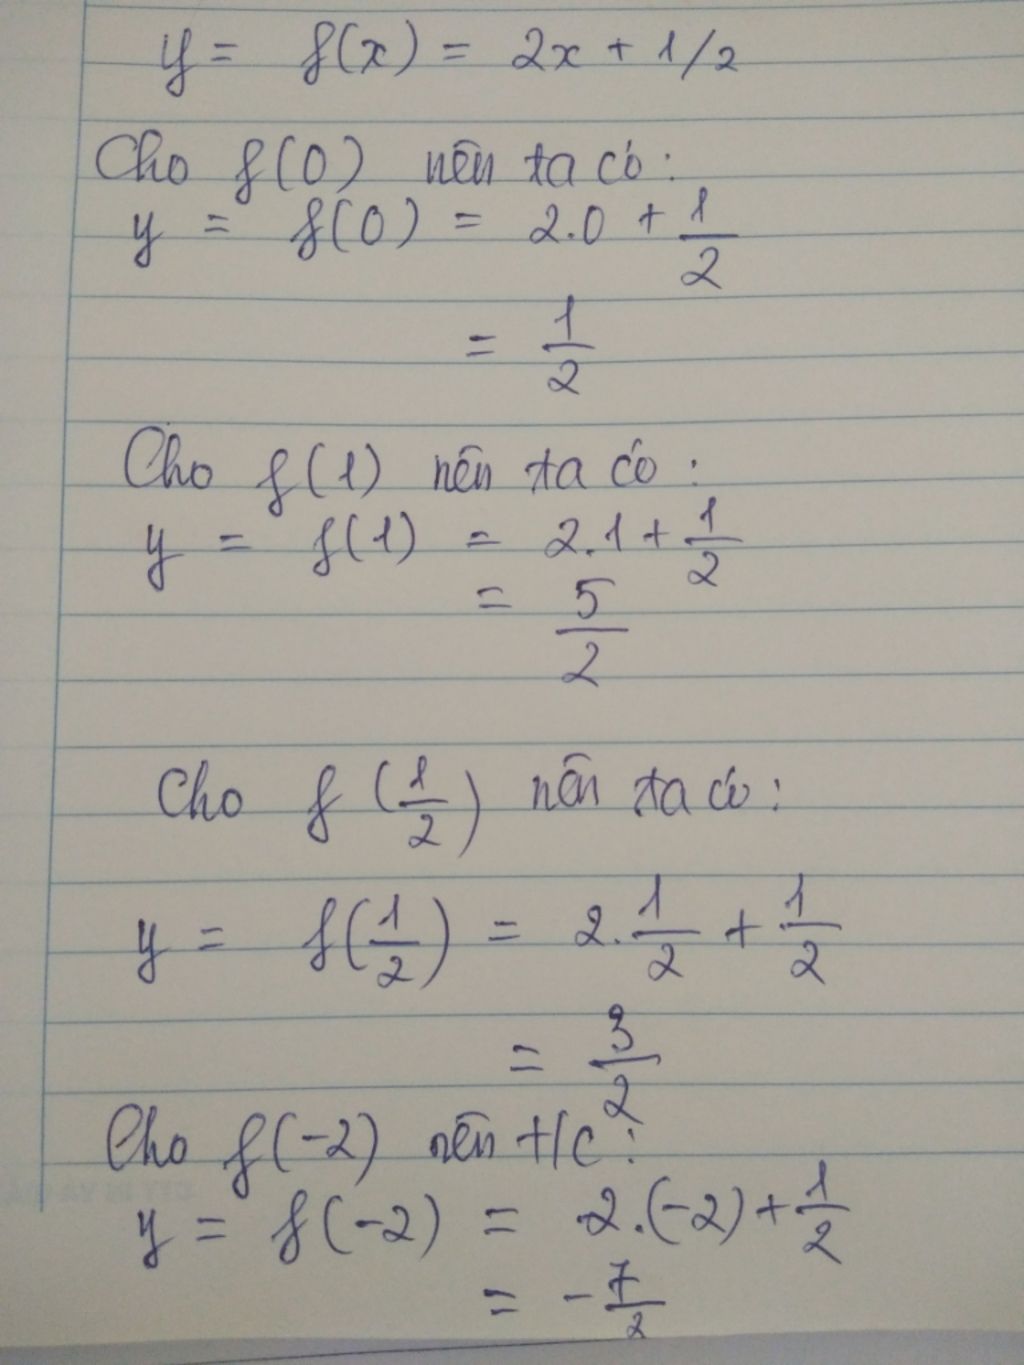 y = f(x) = 2x + 1/2
Cho f(0) nên ta có:
y = f(0) = 2.0 + 1/2
= 1/2
Cho f(1) nên ta có :
y = f(1) = 2.1 + 1/2
= 5/2
Cho f(1/2) nên ta có :
y = f(1/2) = 2.1/2 + 1/2
= 3/2
Cho f(-2) nên t/c :
y = f(-2) = 2.(-2) + 1/2
= -7/2